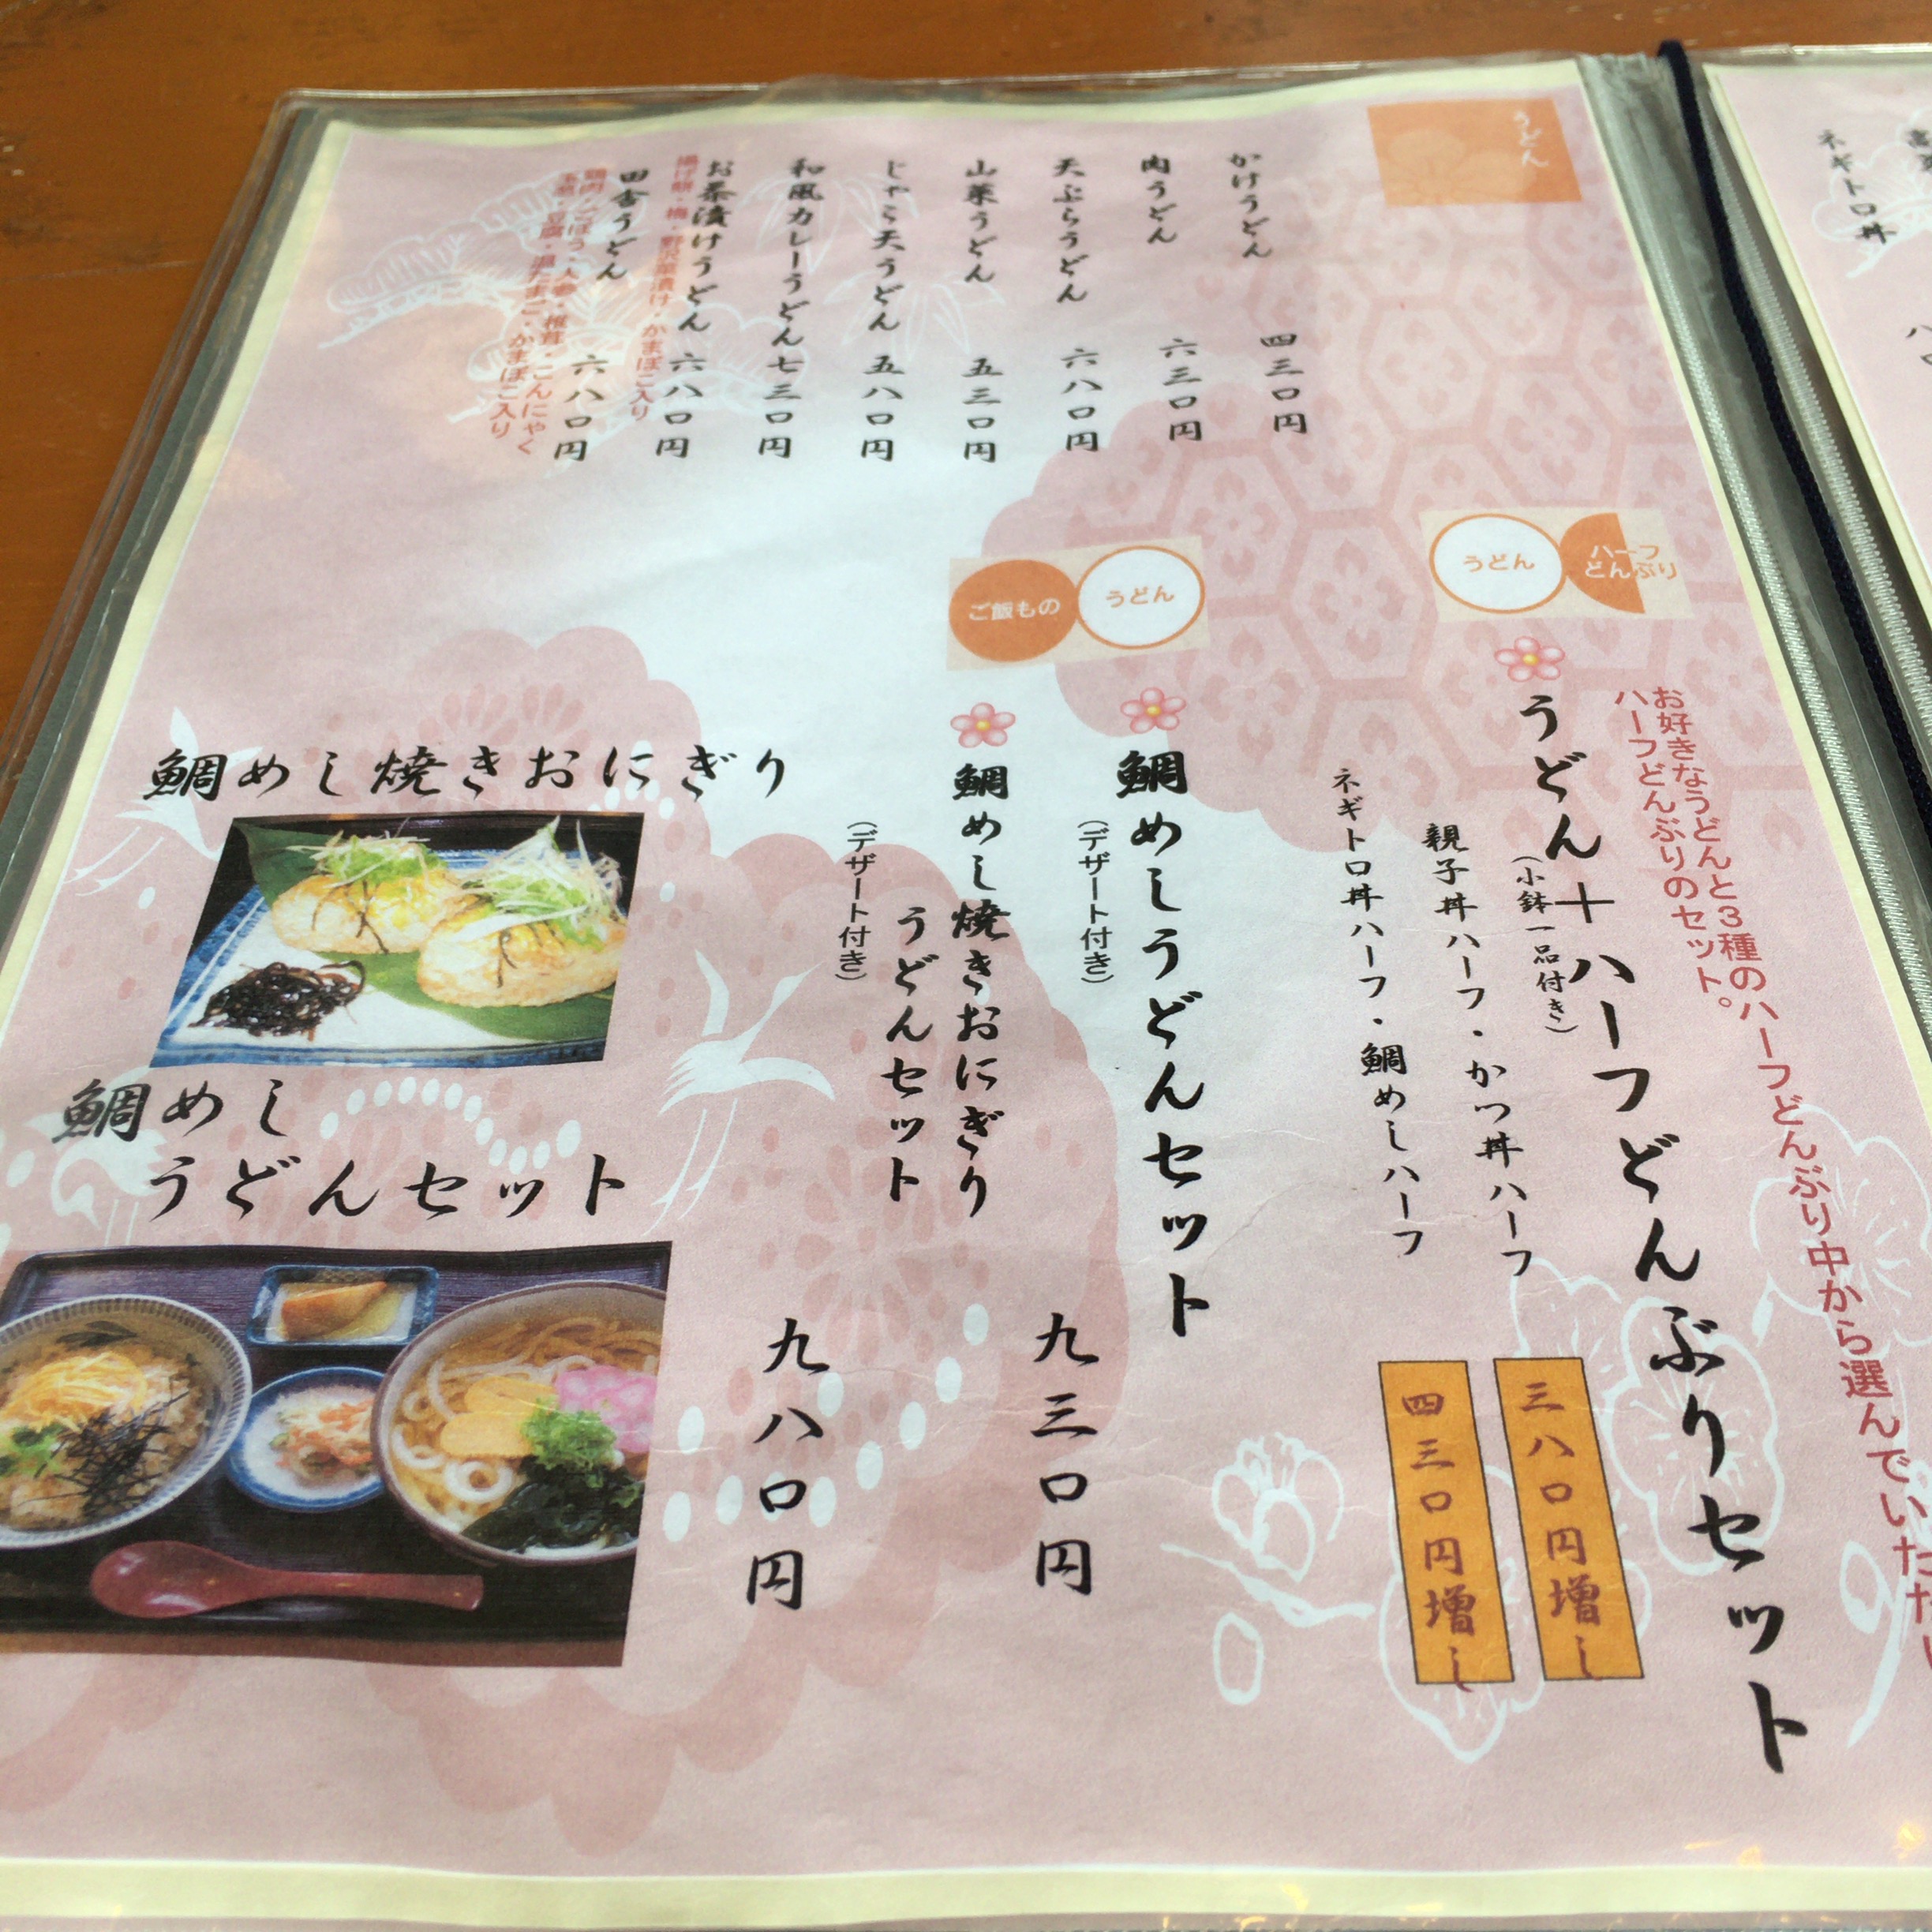 うどん
かけうどん 四三〇円
肉うどん 六三〇円
天ぷらうどん 六八〇円
山菜うどん 五三〇円
じゃこ天うどん 五八〇円
和風カレーうどん 七三〇円
お茶漬けうどん 六八〇円
揚げ餅・梅・野沢菜漬け・かまぼこ入り
田舎うどん 六八〇円
鶏肉・ごぼう・人参・椎茸・こんにゃく
玉葱・豆腐・温たまご・かまぼこ入り
うどん
ハーフ
どんぶり
お好きなうどんと3種のハーフどんぶり中から選んでいただ
ハーフどんぶりのセット。
うどん+ハーフどんぶりセット
(小鉢一品付き)
親子丼ハーフ・かつ丼ハーフ
三八〇円増し
ネギトロ丼ハーフ・鯛めしハーフ
四三〇円増し
ご飯もの
うどん
鯛めしうどんセット
(デザート付き)
九三〇円
鯛めし焼きおにぎり
うどんセット
(デザート付き)
九八〇円
鯛めし焼きおにぎり
鯛めし
うどんセット
ネギトロ丼